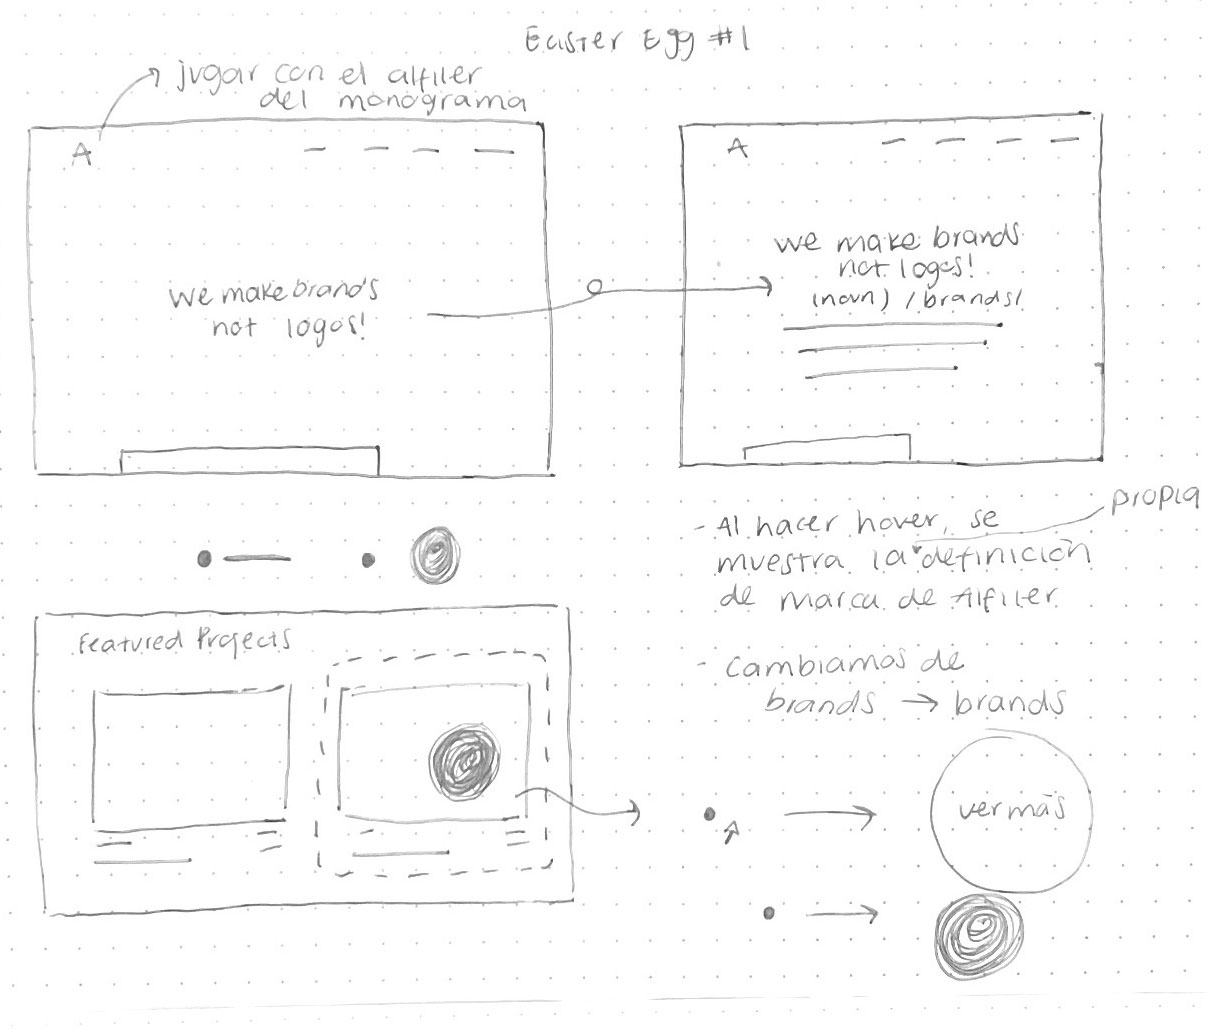 Easter Egg #1
jugar con el alfiler
del monograma
A
We make brands
not logos!
A
we make brands
not logos!
(noun) /brands/
- Al hacer hover, se
propia
muestra la definición
de marca de Alfiler
- Cambiamos de
brands → brands
Featured Projects
ver más